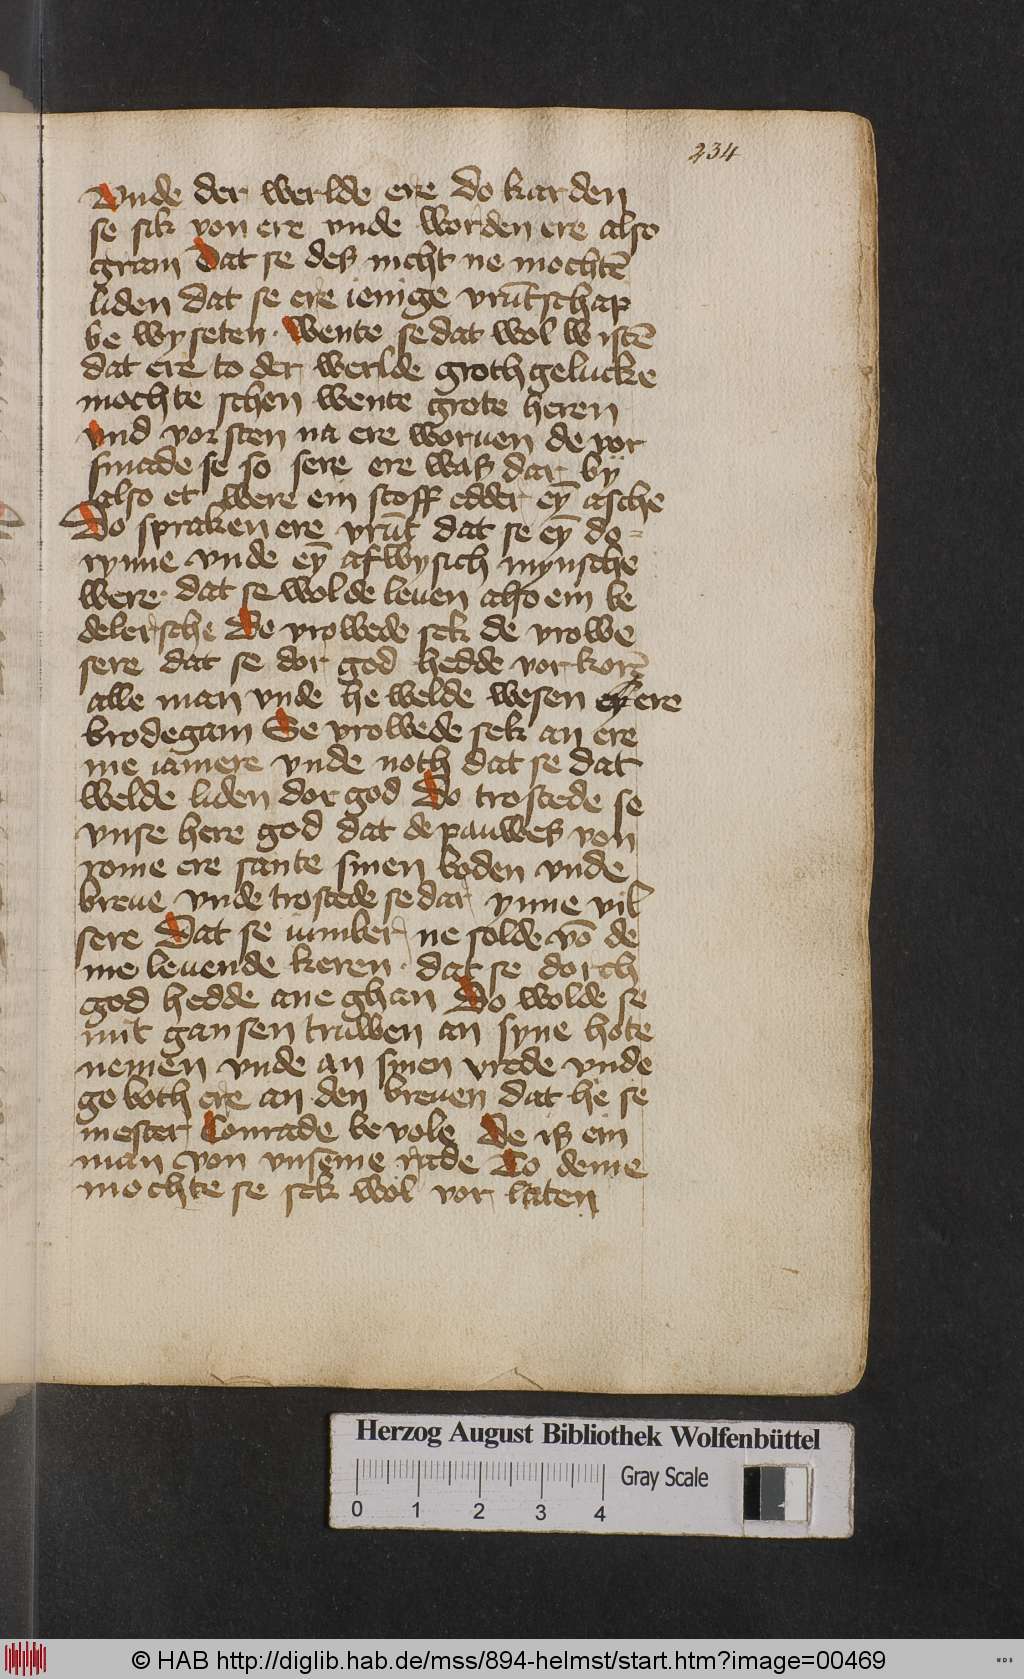 234
Vnde der werlde ere do karden
se sik von ere vnde worden ere also
gram Dat se des nicht ne mochtē
liden dat se ere ienige vrūtschap
be wyseten · Wente se dat wol wistē
dat ere to der werlde groth gelucke
mochte schen wente grote heren
vnd vorsten na ere woruen de vor
smade se so sere ere was dar by
also et were ein stoff edder eȳ asche
Do spraken ere vrūt dat se eȳ do=
rynne vnde eȳ afwysich mynsche
were · dat se wolde leuen also ein be
delersche Do vrowede sck de vrowe
sere dat se dor god hedde vor korē
alle man vnde he welde wesen ere
brodegam Se vrowede sek an ere
me iamere vnde noth dat se dat
welde liden dor god Do trostede se
vnse here god dat de pauwes von
rome ere sante sinen boden vnde
breue vnde trostede se dar ynne vil
sere Dat se iumber ne solde vō de
me leuende keren · dat se dorch
god hedde ane ghan Do wolde se
mit gansen truwen an syne hote
nemen vnde an sinen vrede vnde
ge both ere an den breuen dat he se
mester Conrade be vole De is ein
man von vnseme rade To deme
mochte se sck wol vor laten
Herzog August Bibliothek Wolfenbüttel
0 1 2 3 4 Gray Scale
© HAB http://diglib.hab.de/mss/894-helmst/start.htm?image=00469